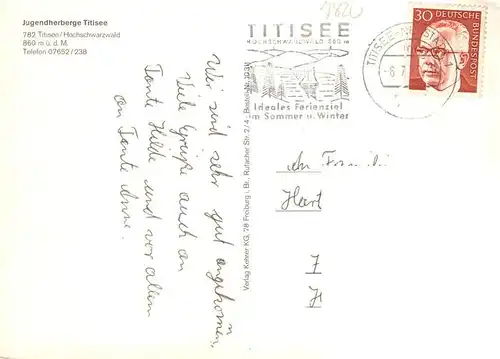 Jugendherberge Titisee
782 Titisee / Hochschwarzwald
860 m ü. d. M.
Telefon 07652 / 238
Wir sind sehr gut angekommen,
Viele Grüße auch an
Tante Hilde und vor allem
an Tante Anne.
Verlag Kehrer KG, 78 Freiburg i. Br., Rufacher Str. 2/4
TITISEE
HOCHSCHWARZWALD 860 m
Ideales Ferienziel
im Sommer u. Winter
TITISEE-NEUSTADT
30 DEUTSCHE
BUNDESPOST
An Familie
Hart